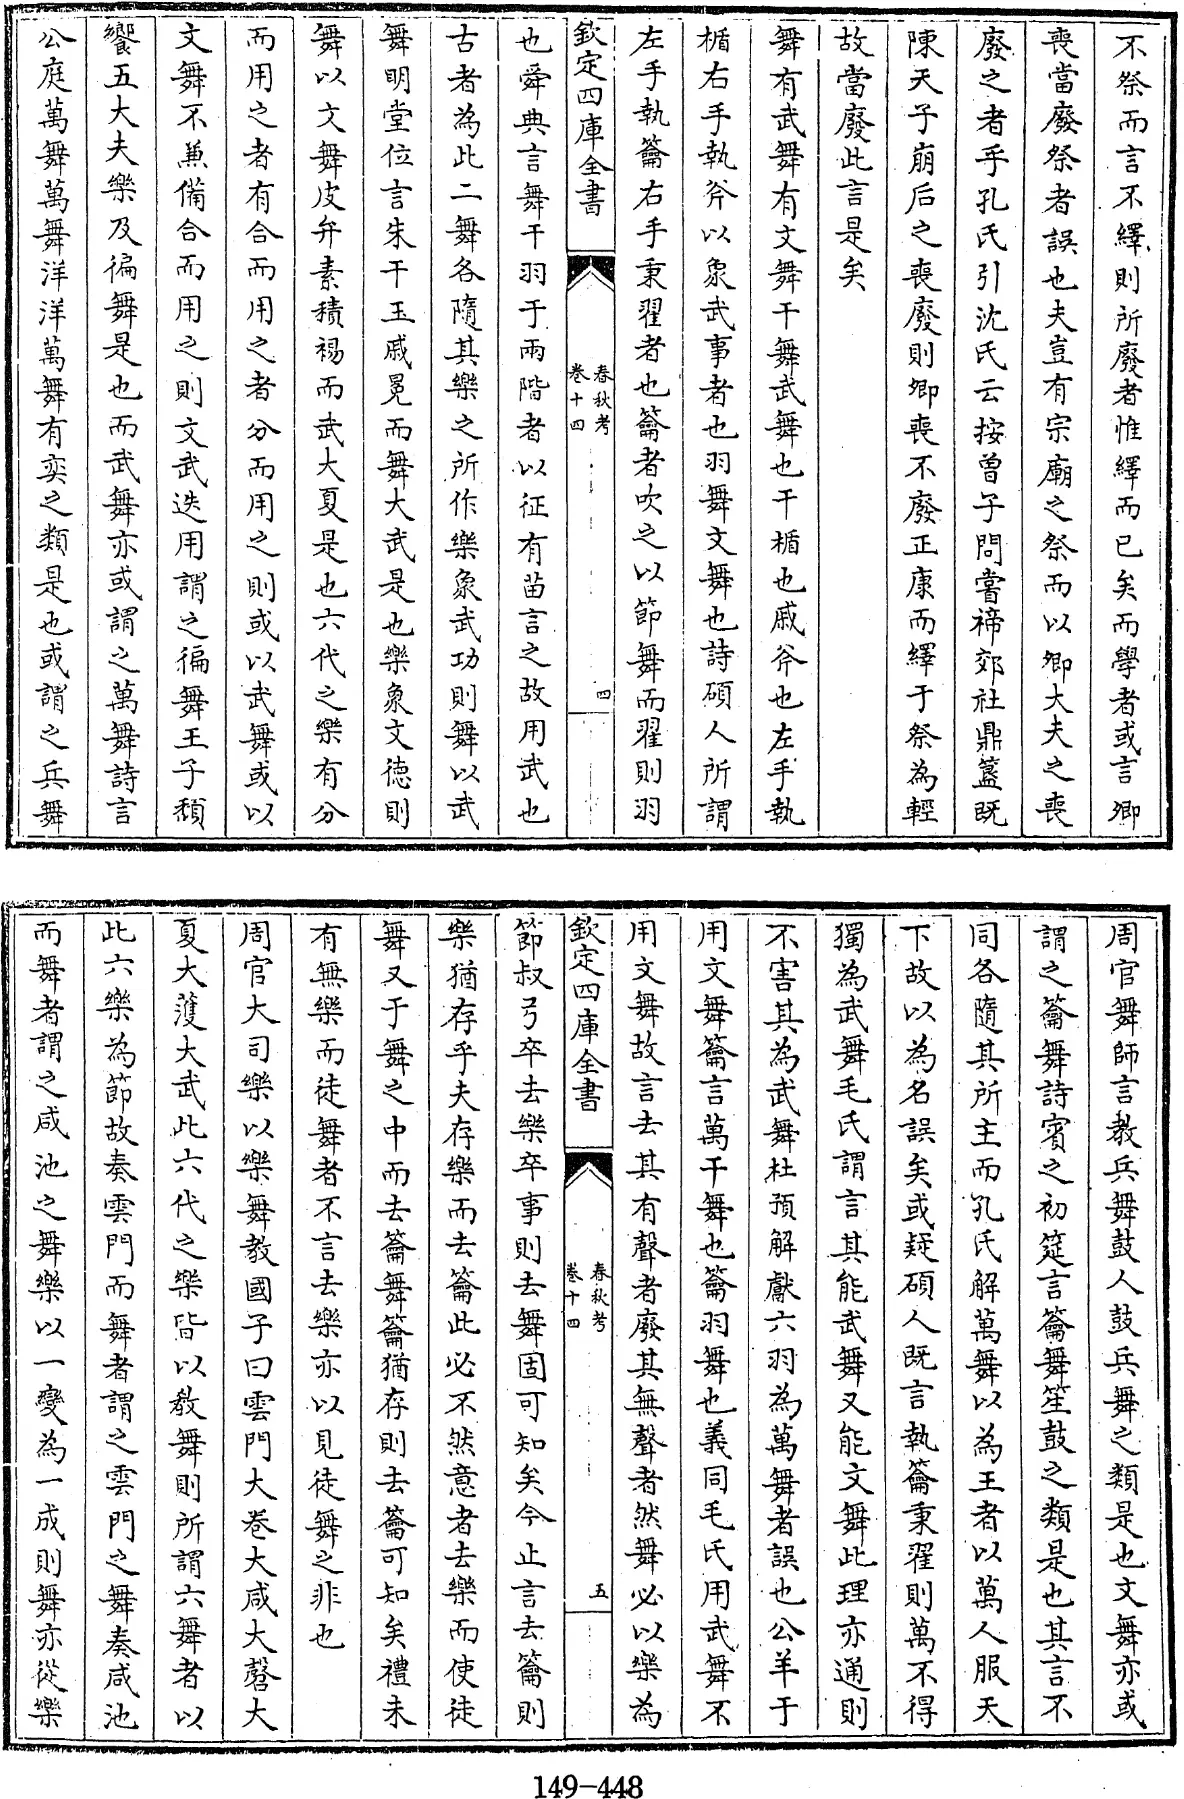 不祭而言不繹則所廢者惟繹而已矣而學者或言卿
喪當廢祭者誤也夫豈有宗廟之祭而以卿大夫之喪
廢之者乎孔氏引沈氏云按曾子問嘗禘郊社鼎簋既
陳天子崩后之喪廢則卿喪不廢正康而繹于祭為輕
故當廢此言是矣
舞有武舞有文舞干舞武舞也干楯也戚斧也左手執
楯右手執斧以象武事者也羽舞文舞也詩碩人所謂
左手執籥右手秉翟者也籥者吹之以節舞而翟則羽
欽定四庫全書
春秋考
卷十四
四
也舜典言舞干羽于兩階者以征有苗言之故用武也
古者為此二舞各隨其樂之所作樂象武功則舞以武
舞明堂位言朱干玉戚冕而舞大武是也樂象文德則
舞以文舞皮弁素積裼而武大夏是也六代之樂有分
而用之者有合而用之者分而用之則或以武舞或以
文舞不兼備合而用之則文武迭用謂之徧舞王子頽
饗五大夫樂及徧舞是也而武舞亦或謂之萬舞詩言
公庭萬舞萬舞洋洋萬舞有奕之類是也或謂之兵舞
周官舞師言教兵舞鼓人鼓兵舞之類是也文舞亦或
謂之籥舞詩賓之初筵言籥舞笙鼓之類是也其言不
同各隨其所主而孔氏解萬舞以為王者以萬人服天
下故以為名誤矣或疑碩人既言執籥秉翟則萬不得
獨為武舞毛氏謂言其能武舞又能文舞此理亦通則
不害其為武舞杜預解獻六羽為萬舞者誤也公羊于
用文舞籥言萬干舞也籥羽舞也義同毛氏用武舞不
用文舞故言去其有聲者廢其無聲者然舞必以樂為
欽定四庫全書
春秋考
卷十四
五
節叔弓卒去樂卒事則去舞固可知矣今止言去籥則
樂猶存乎夫存樂而去籥此必不然意者去樂而使徒
舞又于舞之中而去籥舞籥猶存則去籥可知矣禮未
有無樂而徒舞者不言去樂亦以見徒舞之非也
周官大司樂以樂舞教國子曰雲門大卷大咸大磬大
夏大濩大武此六代之樂皆以教舞則所謂六舞者以
此六樂為節故奏雲門而舞者謂之雲門之舞奏咸池
而舞者謂之咸池之舞樂以一變為一成則舞亦從樂
149-448